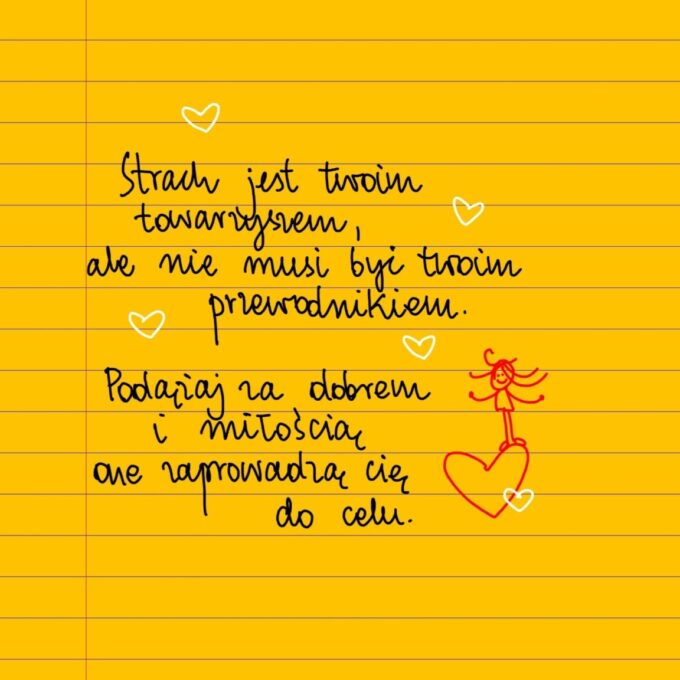 Strach jest twoim
towarzyszem,
ale nie musi być twoim
przewodnikiem.
Podążaj za dobrem
i miłością
one zaprowadzą cię
do celu.